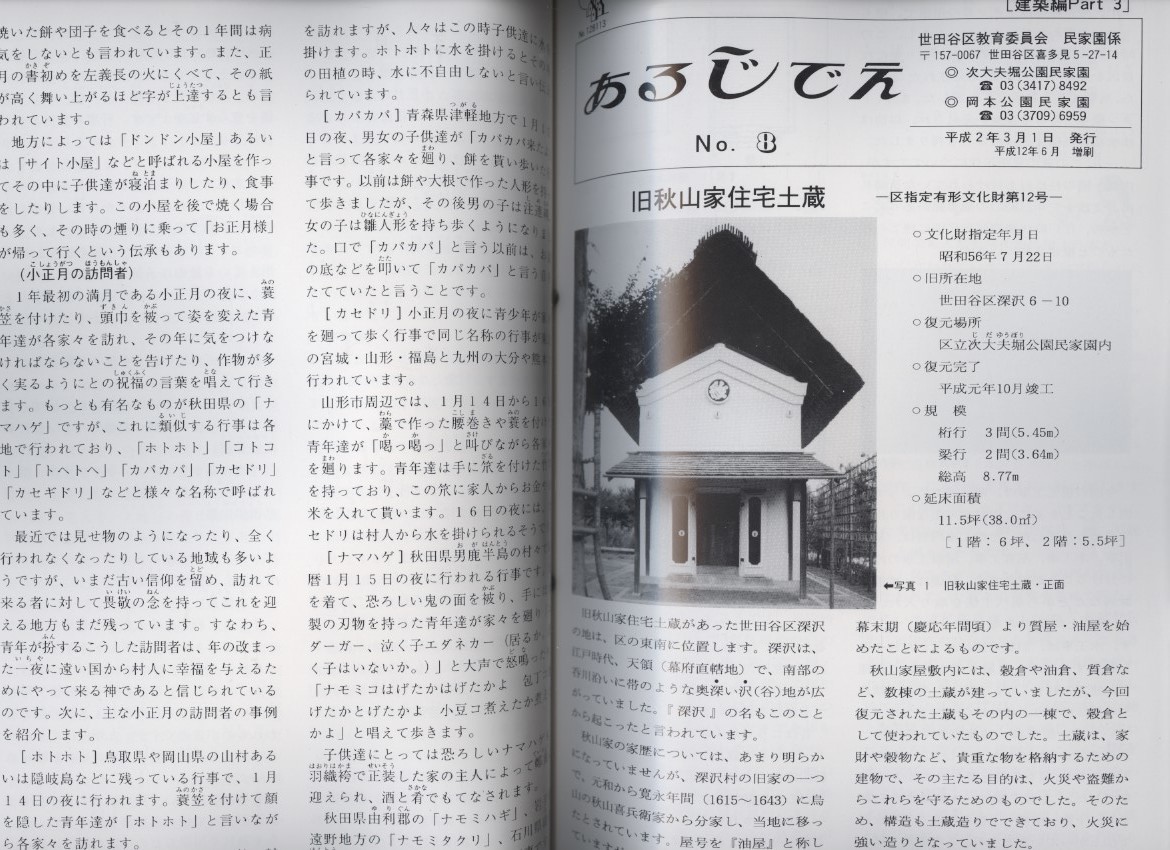 焼いた餅や団子を食べるとその1年間は病
気をしないとも言われています。また、正
月の書初めを左義長の火にくべて、その紙
が高く舞い上がるほど字が上達するとも言
われています。
地方によっては「ドンドン小屋」あるい
は「サイト小屋」などと呼ばれる小屋を作っ
てその中に子供達が寝泊まりしたり、食事
をしたりします。この小屋を後で焼く場合
も多く、その時の煙りに乗って「お正月様」
が帰って行くという伝承もあります。
(小正月の訪問者)
1年最初の満月である小正月の夜に、蓑
笠を付けたり、頭巾を被って姿を変えた青
年達が各家々を訪れ、その年に気をつけな
ければならないことを告げたり、作物が多
く実るようにとの祝福の言葉を唱えて行き
ます。もっとも有名なものが秋田県の「ナ
マハゲ」ですが、これに類似する行事は各
地で行われており、「ホトホト」「コトコ
ト」「トヘトヘ」「カパカパ」「カセドリ」
「カセギドリ」などと様々な名称で呼ばれ
ています。
最近では見せ物のようになったり、全く
行われなくなったりしている地域も多いよ
うですが、いまだ古い信仰を留め、訪れて
来る者に対して畏敬の念を持ってこれを迎
える地方もまだ残っています。すなわち、
青年が扮するこうした訪問者は、年の改まっ
た一夜に遠い国から村人に幸福を与えるた
めにやって来る神であると信じられている
のです。次に、主な小正月の訪問者の事例
を紹介します。
[ホトホト]鳥取県や岡山県の山村ある
いは隠岐島などに残っている行事で、1月
14日の夜に行われます。蓑笠を付けて顔
を隠した青年達が「ホトホト」と言いなが
ら各家々を訪れます。
を訪れますが、人々はこの時子供達に水を
掛けます。ホトホトに水を掛けるとその
の田植の時、水に不自由しないと言い
られています。
[カパカパ]青森県津軽地方で1月1
日の夜、男女の子供達が「カパカパ来たよ
と言って各家々を廻り、餅を貰い歩い
事です。以前は餅や大根で作った人形を
て歩きましたが、その後男の子は注連
女の子は雛人形を持ち歩くようになりま
た。口で「カパカパ」と言う以前は、
の底などを叩いて「カパカパ」と言う
たてていたと言うことです。
[カセドリ]小正月の夜に青少年が
を廻って歩く行事で同じ名称の行事が
の宮城・山形・福島と九州の大分や熊本
行われています。
山形市周辺では、1月14日から1
にかけて、藁で作った腰巻きや蓑を付け
青年達が「喝っ喝っ」と叫びながら各
を廻ります。青年達は手に笊を付けた
を持っており、この笊に家人からお金
米を入れて貰います。16日の夜には、
セドリは村人から水を掛けられるそうで
[ナマハゲ]秋田県男鹿半島の村々
暦1月15日の夜に行われる行事です。
を着て、恐ろしい鬼の面を被り、手に
製の刃物を持った青年達が家々を廻り
ダーガー、泣く子エダネカー(居るか、
く子はいないか。)」と大声で怒鳴った
「ナモミコはげたかはげたかよ 包丁コ
げたかとげたかよ 小豆コ煮えたか煮え
かよ」と唱えて歩きます。
子供達にとっては恐ろしいナマハゲ
羽織袴で正装した家の主人によって
迎えられ、酒と肴でもてなされます。
秋田県由利郡の「ナモミハギ」、岩
遠野地方の「ナモミタクリ」、石川県
[建築編Part 3]
あるじでえ
No. 8
世田谷区教育委員会 民家園係
〒157-0067 世田谷区喜多見5-27-14
◎ 次大夫堀公園民家園
☎ 03(3417)8492
◎ 岡本公園民家園
☎ 03(3709)6959
平成2年3月1日 発行
平成12年6月 増刷
旧秋山家住宅土蔵
―区指定有形文化財第12号―
○文化財指定年月日
昭和56年7月22日
○旧所在地
世田谷区深沢6-10
○復元場所
区立次大夫堀公園民家園内
○復元完了
平成元年10月竣工
○規 模
桁行 3間(5.45m)
梁行 2間(3.64m)
総高 8.77m
○延床面積
11.5坪(38.0㎡)
[1階:6坪、2階:5.5坪]
⬅写真 1 旧秋山家住宅土蔵・正面
旧秋山家住宅土蔵があった世田谷区深沢
の地は、区の東南に位置します。深沢は、
江戸時代、天領(幕府直轄地)で、南部の
呑川沿いに帯のような奥深い沢(谷)地が広
がっていました。『深沢』の名もこのこと
から起こったと言われています。
秋山家の家歴については、あまり明らか
になっていませんが、深沢村の旧家の一つ
で、元和から寛永年間(1615~1643)に烏
山の秋山喜兵衛家から分家し、当地に移っ
たとされています。屋号を『油屋』と称し
幕末期(慶応年間頃)より質屋・油屋を始
めたことによるものです。
秋山家屋敷内には、穀倉や油倉、質倉な
ど、数棟の土蔵が建っていましたが、今回
復元された土蔵もその内の一棟で、穀倉と
して使われていたものでした。土蔵は、家
財や穀物など、貴重な物を格納するための
建物で、その主たる目的は、火災や盗難か
らこれらを守るためのものでした。そのた
め、構造も土蔵造りでできており、火災に
強い造りとなっていました。